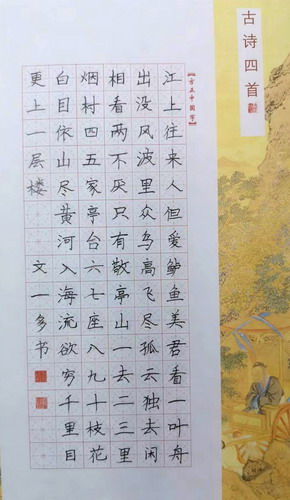 古诗四首
江上往来人但爱鲈鱼美君看一叶舟
出没风波里众鸟高飞尽孤云独去闲
相看两不厌只有敬亭山一去二三里
烟村四五家亭台六七座八九十枝花
白日依山尽黄河入海流欲穷千里目
更上一层楼 文一多书